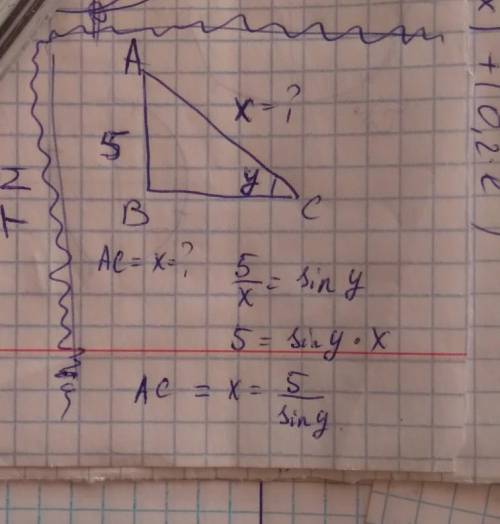 A
x = ?
5
y
B
C
AC = x = ?
5/x = sin y
5 = sin y · x
AC = x = 5/sin y